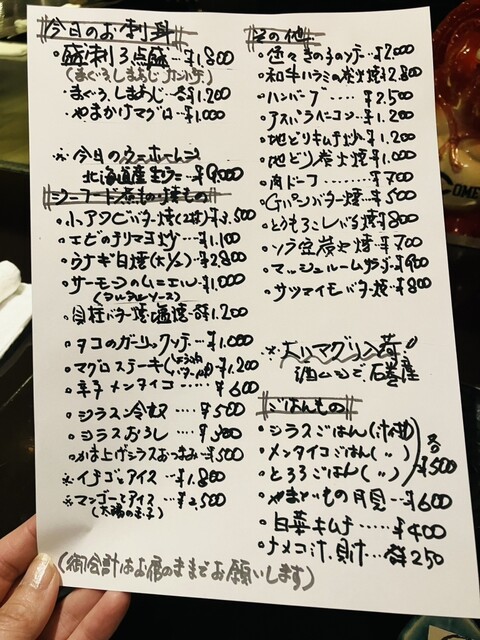 今日のお刺身
・盛刺3点盛…¥1.800
(まぐろ、しまあじ、カンパチ)
・まぐろ、しまあじ…各¥1.200
・やまかけマグロ…¥1.000
※今日のウニホールーン
北海道産生ウニ…¥9.000
シーフード煮もの・焼もの
・小アワビバター焼(2ヶ)…¥3.500
・エビのチリマヨ炒…¥1.100
・ウナギ白焼(大1/2)…¥2.800
・サーモンのムニエル…¥1.000
(タルタルソース)
・貝柱バター焼・塩焼…各¥1.200
・タコのガーリックソテー…¥1.000
・マグロステーキ(しょうゆバター)…¥1.200
・辛子メンタイコ…¥600
・シラス冷奴…¥500
・シラスおろし…¥500
・かま上げシラスおつまみ…¥500
※イチゴとアイス…¥1.800
※マンゴーとアイス…¥2.500
(太陽の玉子)
(御会計はお席のままでお願いします)
その他
・色々きの子のソテー…¥2.000
・和牛ハラミの炭火焼…¥2.800
・ハンバーグ……¥2.500
・アスパラベーコン…¥1.200
・地どりキムチ炒…¥1.200
・地どり炭火焼…¥1.000
・肉ドーフ……¥700
・Gパンバター焼…¥500
・とうもろこしバター焼…¥800
・ソラ豆炭火焼…¥700
・マッシュルームサラダ…¥900
・サツマイモバター焼…¥800
※大トリマグリ入荷!!
酒ムシで 石巻産
ごはんもの
・シラスごはん(汁付)
・メンタイコごはん(〃)
・とろろごはん(〃)
各¥500
・やまといもの月見…¥600
・白菜キムチ……¥400
・ナメコ汁、貝汁…各¥250
COME